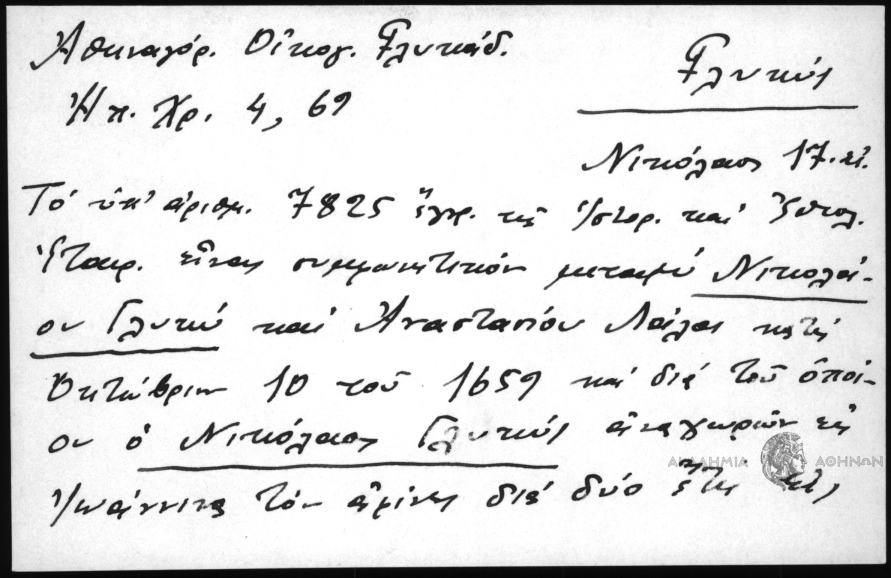 Ἀθηναγόρ. Οἶκογ. Γλυκάδ.
Γλυκύς
Ἠπ. Χρ. 4, 69
Νικόλαος 17. αἰ.
Τό ὑπ' ἀριθμ. 7825 ἔγγρ. τῆς Ἱστορ. καί Ἐθνολ.
Ἑταιρ. εἶναι συμφωνητικόν μεταξύ Νικολά-
ου Γλυκύ καί Ἀναστασίου κατά
Ὀκτώβριον 10 τοῦ 1659 καί διά τοῦ ὁποί-
ου ὁ Νικόλαος Γλυκύς ἀναχωρῶν εἰς
ΑΚΑΔΗΜΙΑ ΑΘΗΝΩΝ
Ἰωάννινα τόν ἀφίνει διά δύο ἔτη εἰς